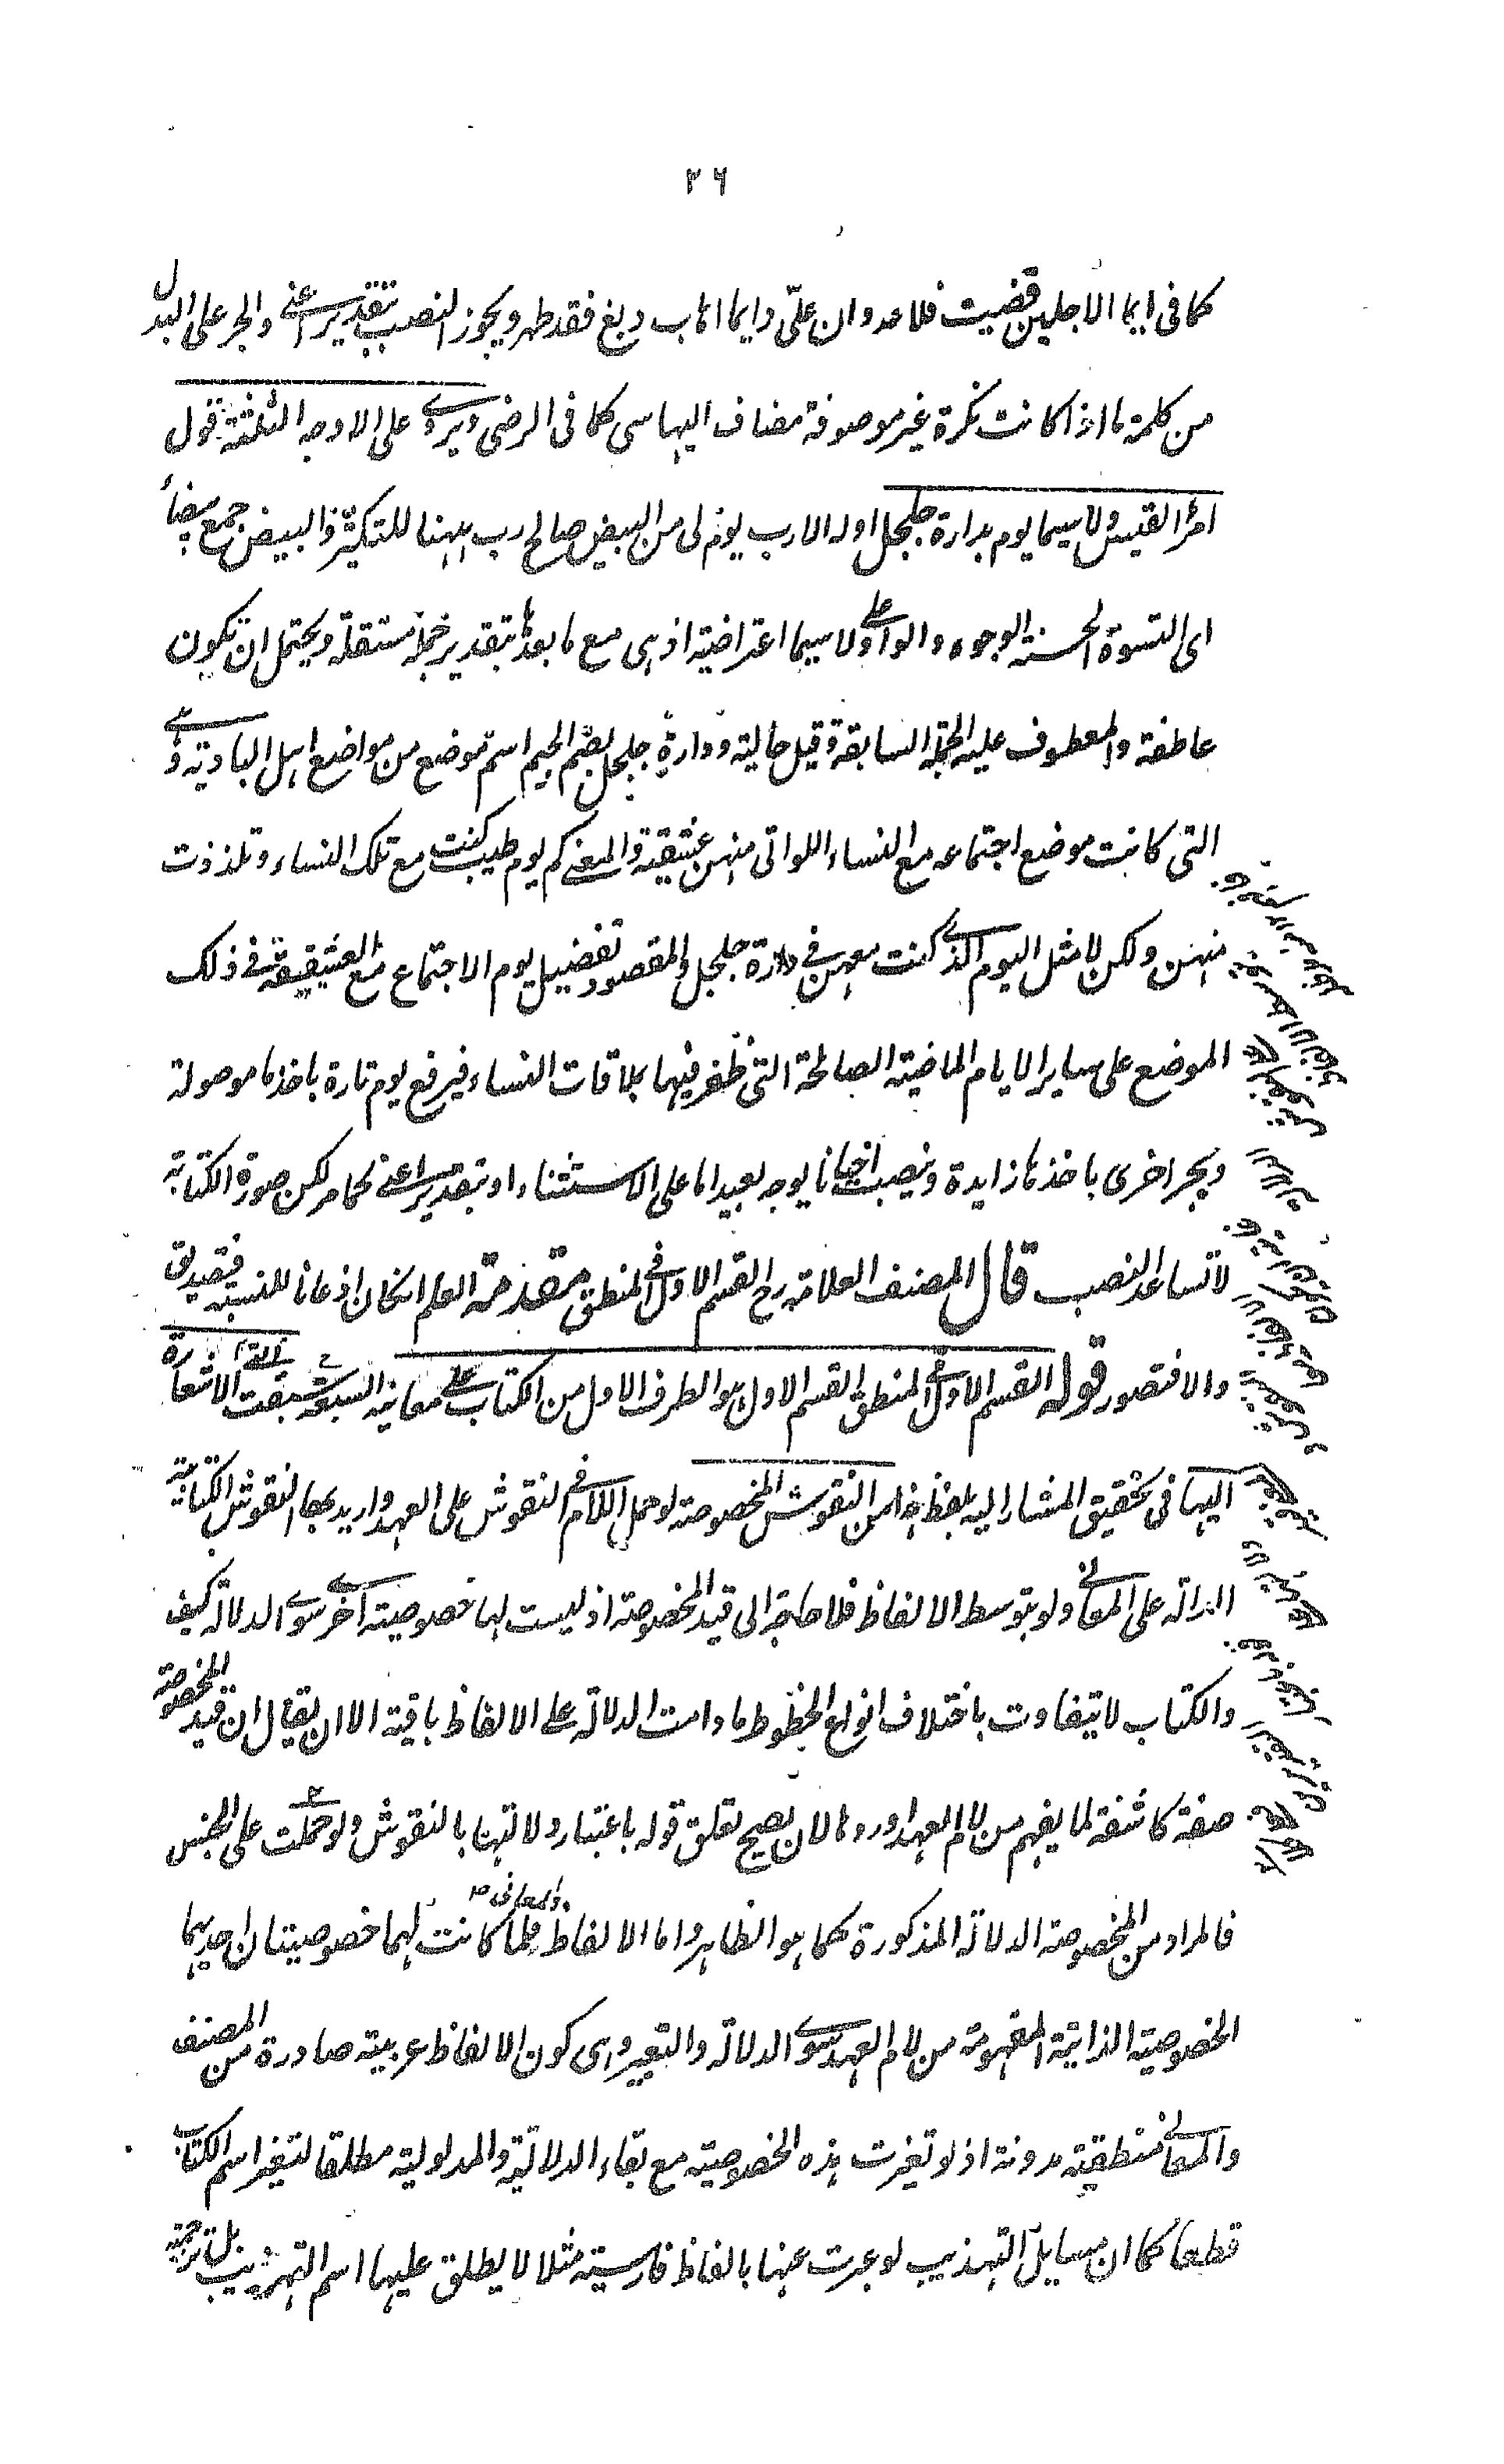 ٢٦
كما فى ايما الاجلين قضيت فلا عدوان علىّ وايما اهاب دبغ فقد طهر ويجوز النصب بتقدير اعنى والجر على البدل
من كلمة ما اذا كانت نكرة غير موصوفة مضاف اليها سى كما فى الرضى ويروى على الاوجه الثلثة قول
امرأ القيس ولا سيما يوم بدارة جلجل اوله الا رب يوم لى من البيض صالح رب ههنا للتكثير والبيض جمع بيضاء
اى النسوة الحسنة الوجوه والواو على ولا سيما اعتراضية اذ هى مع ما بعدها بتقدير جملة مستقلة ويحتمل ان تكون
عاطفة والمعطوف عليه الجملة السابقة وقيل حالية ودارة جلجل بضم الجيم اسم موضع من مواضع اهل البادية وهى
التى كانت موضع اجتماعه مع النساء اللواتى منهن عشيقته والمعنى كم يوم طيب كنت مع تلك النساء وتلذذت
منهن ولكن لا مثل اليوم الذى كنت معهن فى دارة جلجل والمقصود تفضيل يوم الاجتماع مع العشيقة فى ذلك
الموضع على ساير الايام الماضية الصالحة التى ظفر فيها بملاقات النساء فيرفع يوم تارة باخذ ما موصولة
ويجر اخرى باخذها زايدة وينصب احيانا بوجه بعيد اما على الاستثناء او بتقدير اعنى كما مر لكن صورة الكتابة
لا تساعد النصب قال المصنف العلامة رح القسم الاول فى المنطق مقدمة العلم ان كان اذعانا للنسبة فتصديق
والا فتصور قوله القسم الاول فى المنطق القسم الاول هو الطرف الاول من الكتاب على معانيه السبعة التى سبقت الاشارة
اليها فى تحقيق المشار اليه بلفظ هذا من النقوش المخصوصة لو حمل اللام فى النقوش على العهد واريد بها النقوش الكتابية
الدالة على المعانى ولو بتوسط الالفاظ فلا حاجة الى قيد المخصوصة اذ ليست لها خصوصية اخرى سوى الدلالة كيف
والكتاب لا يتفاوت باختلاف انواع الخطوط ما دامت الدلالة على الالفاظ باقية الا ان يقال ان قيد المخصوصة
صفة كاشفة لما يفهم من لام العهد اوردها لان يصح تعلق قوله باعتبار دلالتها بالنقوش ولو حملت على الجنس
فالمراد من المخصوصة الدلالة المذكورة كما هو الظاهر واما الالفاظ والمعانى فلما كانت لهما خصوصيتان احديهما
الخصوصية الذاتية المفهومة من لام العهد سوى الدلالة والتعبير وهى كون الالفاظ عربية صادرة من المصنف
والمعانى منطقية مدونة اذ لو تغيرت هذه الخصوصية مع بقاء الدلالية والمدلولية مطلقا لتغير اسم الكتاب
قطعا كما ان مسايل التهذيب لو عبرت عنها بالفاظ فارسية مثلا لا يطلق عليها اسم التهذيب بل ترجمته